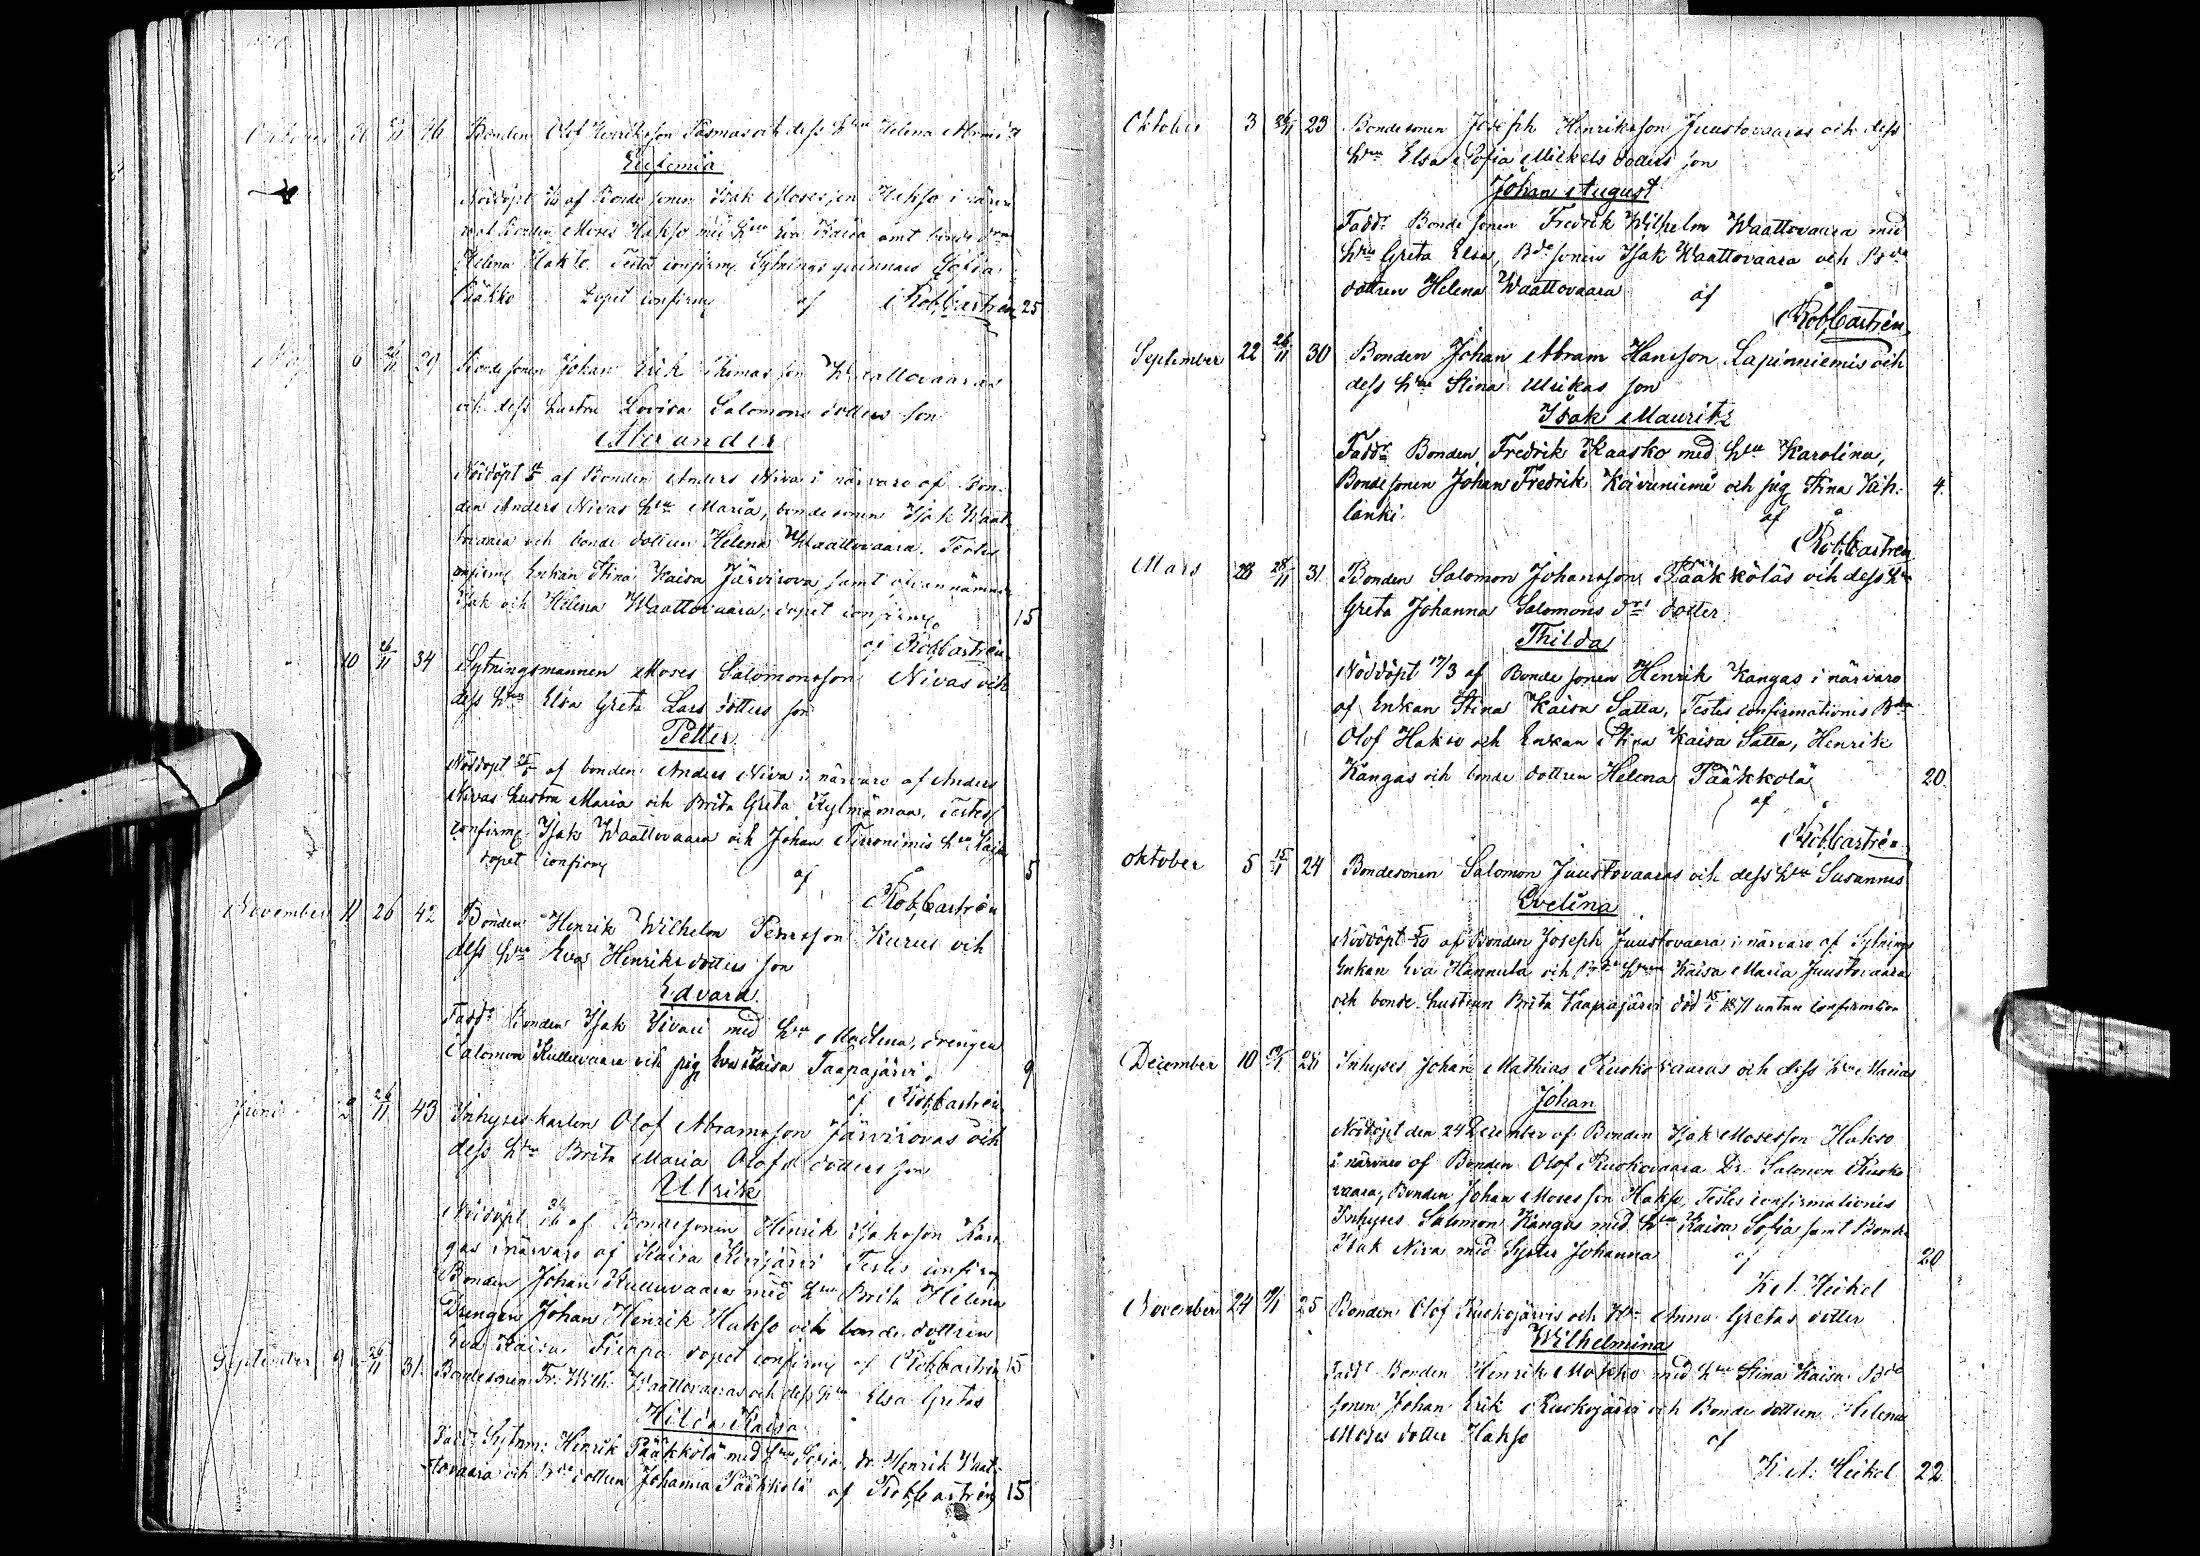 26/11 46 Bonden Olof Henriksson Pasmas och dess Hru Helena
Eufemia
Nöddöpt af Bonde sonen Isak Mosesson Hakso i närva
Bonden Moses Hakso med Hru Eva Kaisa samt bonde
Helena Hakso Testes confirm: Sytnings qvinnan Sofia
dopet confirm af Rob. Castrén 25
Maj 6 26/11 29 Bondesonen Johan Erik Thomasson Waattovaaras
och dess hustru Lovisa Salomons dotters son
Alexander
Nöddöpt af Bonden Anders Niva i närvaro af Bon-
den Anders Nivas Hru Maria, bonde sonen Isak Waat
tovaara och bonde dottren Helena Waattovaara. Testes
confirm: Enkan Stina Kaisa Järvirova, samt ofvannämnde
Isak och Helena Waattovaara, dopet confirm 15
af Rob. Castrén
10 26/11 34 Sytningsmannen Moses Salomonsson Nivas och
dess Hru Elsa Greta Lars dotters son
Petter
Nöddöpt af bonden Anders Niva i närvaro af Anders
Nivas hustru Maria och Brita Greta Kylmämaa, Testes
confirm: Isak Waattovaara och Johan Hru
dopet confirm af 5
Rob. Castrén
November 11 26 42 Bonden Henrik Wilhelm Persson Kurus och
dess Hru Eva Henriks dotters son
Edvard
Fadd: Bonden Isak med Hru Madlena, drengen
Salomon Kulluvaara och pig Eva Kaisa Taapajärvi 9
af Rob. Castrén
Juni 2 26/11 43 Inhyses karlen Olof Abramsson Järvirovas och
dess Hru Brita Maria Olofs dotters son
Ulrik
Nöddöpt af Bondesonen Henrik Isaksson Kan
gas i närvaro af Kaisa Testes confirm
Bonden Johan Kulluvaara med Hru Brita Helena
Drengen Johan Henrik Hakso och bonde dottren
Eva Kaisa dopet confirm af Rob. Castrén 15
September 9 26/11 31 Bondesonen Fr: Wilh. Waattovaaras och dess Hru Elsa Gretas
Hilda Kaisa
Fadd: Sytnm: Henrik Pääkkölä med Hru Sofia, dr. Henrik Waat-
tovaara och Bde dottren Johanna Pääkkölä af Rob. Castrén 15
Oktober 3 26/11 23 Bondesonen Joseph Henriksson Juustovaaras och dess
Hru Elsa Sofia Mickels dotters son
Johan August
Fadd: Bonde sonen Fredrik Wilhelm Waattovaara med
Hru Greta Elsa, Bde sonen Isak Waattovaara och Bde
dottren Helena Waattovaara af
Rob. Castrén
September 22 26/11 30 Bonden Johan Abram Hansson Lapinniemis och
dess Hru Stina Ulrikas son
Isak Mauritz
Fadd: Bonden Fredrik Kaasko med Hru Karolina,
Bonde sonen Johan Fredrik Koivuniemi och pig Stina Kih- 4
lanki af
Rob. Castrén
Mars 28/11 31 Bonden Salomon Johansson Pääkköläs och dess Hru
Greta Johanna Salomons drs dotter
Thilda
Nöddöpt 17/3 af Bonde sonen Henrik Kangas i närvaro
af Enkan Stina Kaisa Satta, Testes confirmationis Bdn
Olof Hakso och Enkan Stina Kaisa Satta, Henrik
Kangas och bonde dottren Helena Pääkkölä 20
af
Rob. Castrén
Oktober 5 15/1 24 Bondesonen Salomon Juustovaaras och dess Hru Susannas
Evelina
Nöddöpt af Bonden Joseph Juustovaara i närvaro af Sytnings
Enkan Eva Hannula och Hrun Kaisa Maria Juustovaara
och bonde hustrun Brita Vaaprajärvi död 15/1 1871 untan confirmtion
December 10 28 Inhyses Johan Mathias Ruokovaaras och dess Hru Marias
Johan
Nöddöpt den 24 December af Bonden Isak Mosesson Hakso
i närvaro af Bonden Olof Ruokovaara Dr. Salomon Ruoko
vaara, Bonden Johan Moses son Hakso, Testes confirmationis
Inhyses Salomon Kangas med Hru Kaisa Sofia samt Bonde
Isak Niva med Syster Johanna af 20
K. A. Heikel
November 24 25 Bonden Olof Ruokojärvis och Hru Anna Gretas dotter
Wilhelmina
Fadd: Bonden Henrik Mokko med Hru Stina Kaisa Bde
sonen Johan Erik Ruokojärvi och Bonde dottren Helena
Moses dotter Hakso af
K. A. Heikel 22